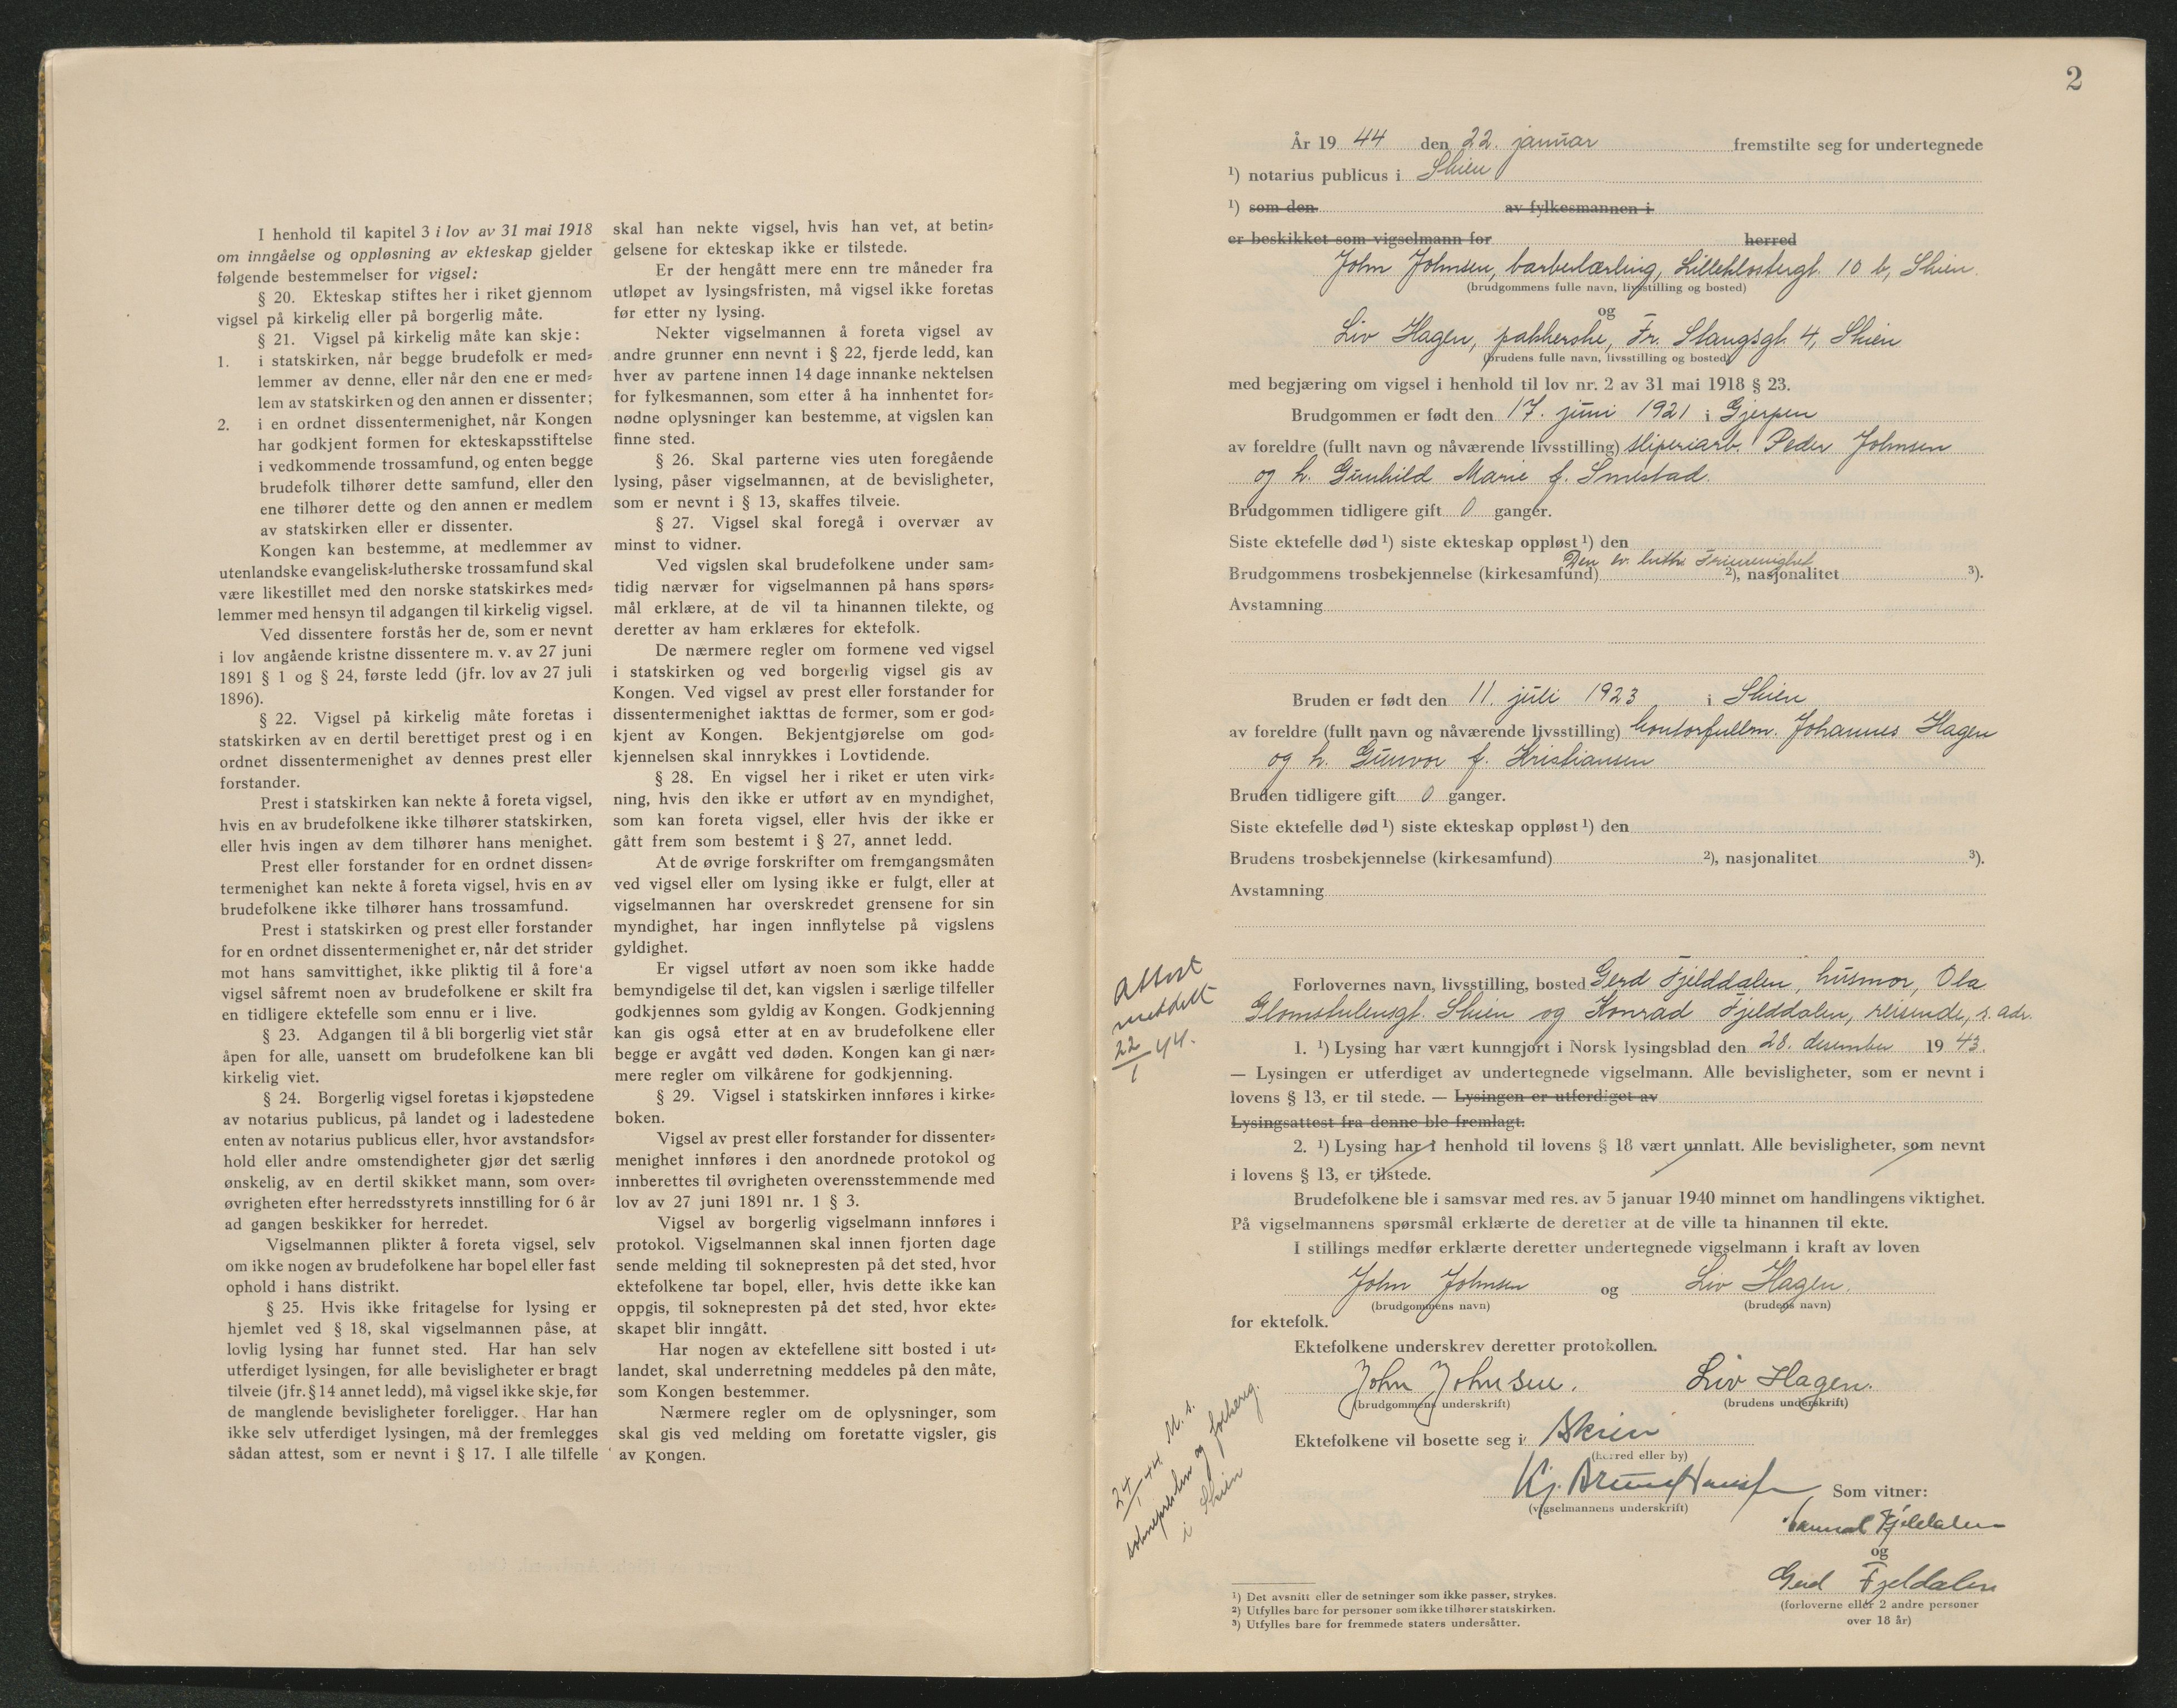 I henhold til kapitel 3 i lov av 31 mai 1918
om inngåelse og oppløsning av ekteskap gjelder
følgende bestemmelser for vigsel:
§ 20. Ekteskap stiftes her i riket gjennom
vigsel på kirkelig eller på borgerlig måte.
§ 21. Vigsel på kirkelig måte kan skje:
1. i statskirken, når begge brudefolk er med=
lemmer av denne, eller når den ene er med=
lem av statskirken og den annen er dissenter;
2. i en ordnet dissentermenighet, når Kongen
har godkjent formen for ekteskapsstiftelse
i vedkommende trossamfund, og enten begge
brudefolk tilhører dette samfund, eller den
ene tilhører dette og den annen er medlem
av statskirken eller er dissenter.
Kongen kan bestemme, at medlemmer av
utenlandske evangelisk=lutherske trossamfund skal
være likestillet med den norske statskirkes med=
lemmer med hensyn til adgangen til kirkelig vigsel.
Ved dissentere forstås her de, som er nevnt
i lov angående kristne dissentere m. v. av 27 juni
1891 § 1 og § 24, første ledd (jfr. lov av 27 juli
1896).
§ 22. Vigsel på kirkelig måte foretas i
statskirken av en dertil berettiget prest og i en
ordnet dissentermenighet av dennes prest eller
forstander.
Prest i statskirken kan nekte å foreta vigsel,
hvis en av brudefolkene ikke tilhører statskirken,
eller hvis ingen av dem tilhører hans menighet.
Prest eller forstander for en ordnet dissen=
termenighet kan nekte å foreta vigsel, hvis en av
brudefolkene ikke tilhører hans trossamfund.
Prest i statskirken og prest eller forstander
for en ordnet dissentermenighet er, når det strider
mot hans samvittighet, ikke pliktig til å fore'a
vigsel såfremt noen av brudefolkene er skilt fra
en tidligere ektefelle som ennu er i live.
§ 23. Adgangen til å bli borgerlig viet står
åpen for alle, uansett om brudefolkene kan bli
kirkelig viet.
§ 24. Borgerlig vigsel foretas i kjøpstedene
av notarius publicus, på landet og i ladestedene
enten av notarius publicus eller, hvor avstandsfor=
hold eller andre omstendigheter gjør det særlig
ønskelig, av en dertil skikket mann, som over=
øvrigheten efter herredsstyrets innstilling for 6 år
ad gangen beskikker for herredet.
Vigselmannen plikter å foreta vigsel, selv
om ikke nogen av brudefolkene har bopel eller fast
ophold i hans distrikt.
§ 25. Hvis ikke fritagelse for lysing er
hjemlet ved § 18, skal vigselmannen påse, at
lovlig lysing har funnet sted. Har han selv
utferdiget lysingen, før alle bevisligheter er bragt
tilveie (jfr. § 14 annet ledd), må vigsel ikke skje, før
de manglende bevisligheter foreligger. Har han
ikke selv utferdiget lysingen, må der fremlegges
sådan attest, som er nevnt i § 17. I alle tilfelle
skal han nekte vigsel, hvis han vet, at betin=
gelsene for ekteskap ikke er tilstede.
Er der hengått mere enn tre måneder fra
utløpet av lysingsfristen, må vigsel ikke foretas
før etter ny lysing.
Nekter vigselmannen å foreta vigsel av
andre grunner enn nevnt i § 22, fjerde ledd, kan
hver av partene innen 14 dage innanke nektelsen
for fylkesmannen, som etter å ha innhentet for=
nødne oplysninger kan bestemme, at vigslen kan
finne sted.
§ 26. Skal parterne vies uten foregående
lysing, påser vigselmannen, at de bevisligheter,
som er nevnt i § 13, skaffes tilveie.
§ 27. Vigsel skal foregå i overvær av
minst to vidner.
Ved vigslen skal brudefolkene under sam=
tidig nærvær for vigselmannen på hans spørs=
mål erklære, at de vil ta hinannen tilekte, og
deretter av ham erklæres for ektefolk.
De nærmere regler om formene ved vigsel
i statskirken og ved borgerlig vigsel gis av
Kongen. Ved vigsel av prest eller forstander for
dissentermenighet iakttas de former, som er god=
kjent av Kongen. Bekjentgjørelse om god=
kjennelsen skal innrykkes i Lovtidende.
§ 28. En vigsel her i riket er uten virk=
ning, hvis den ikke er utført av en myndighet,
som kan foreta vigsel, eller hvis der ikke er
gått frem som bestemt i § 27, annet ledd.
At de øvrige forskrifter om fremgangsmåten
ved vigsel eller om lysing ikke er fulgt, eller at
vigselmannen har overskredet grensene for sin
myndighet, har ingen innflytelse på vigslens
gyldighet.
Er vigsel utført av noen som ikke hadde
bemyndigelse til det, kan vigslen i særlige tilfeller
godkjennes som gyldig av Kongen. Godkjenning
kan gis også etter at en av brudefolkene eller
begge er avgått ved døden. Kongen kan gi nær=
mere regler om vilkårene for godkjenning.
§ 29. Vigsel i statskirken innføres i kirke=
boken.
Vigsel av prest eller forstander for dissenter=
menighet innføres i den anordnede protokol og
innberettes til øvrigheten overensstemmende med
lov av 27 juni 1891 nr. 1 § 3.
Vigsel av borgerlig vigselmann innføres i
protokol. Vigselmannen skal innen fjorten dage
sende melding til soknepresten på det sted, hvor
ektefolkene tar bopel, eller, hvis dette ikke kan
oppgis, til soknepresten på det sted, hvor ekte=
skapet blir inngått.
Har nogen av ektefellene sitt bosted i ut=
landet, skal underretning meddeles på den måte,
som Kongen bestemmer.
Nærmere regler om de oplysninger, som
skal gis ved melding om foretatte vigsler, gis
av Kongen.
2
År 19 44 den 22. januar fremstilte seg for undertegnede
¹) notarius publicus i Skien
¹) som den av fylkesmannen i
er beskikket som vigselmann for herred
John Johnsen, barberlærling, Lilleklostergt. 10 b, Skien.
(brudgommens fulle navn, livsstilling og bosted)
og
Liv Hagen, pakkerske, Fr. Stangsgt. 4, Skien
(brudens fulle navn, livsstilling og bosted)
med begjæring om vigsel i henhold til lov nr. 2 av 31 mai 1918 § 23.
Brudgommen er født den 17. juni 1921 i Gjerpen
av foreldre (fullt navn og nåværende livsstilling) sliperiarb. Peder Johnsen
og h. Gunhild Marie f. Smestad.
Brudgommen tidligere gift 0 ganger.
Siste ektefelle død ¹) siste ekteskap oppløst ¹) den
Den ev. luth. Frimenighet
Brudgommens trosbekjennelse (kirkesamfund) ²), nasjonalitet ³).
Avstamning
Bruden er født den 11. juli 1923 i Skien
av foreldre (fullt navn og nåværende livsstilling) kontorfullm. Johannes Hagen
og h. Gunvor f. Kristiansen
Bruden tidligere gift 0 ganger.
Siste ektefelle død ¹) siste ekteskap oppløst ¹) den
Brudens trosbekjennelse (kirkesamfund) ²), nasjonalitet ³).
Avstamning
Forlovernes navn, livsstilling, bosted Gerd Fjelddalen, husmor, Ola
Glomstulensgt. Skien og Konrad Fjelddalen, reisende, s. adr.
Attest
meddelt
22/1 44.
1. ¹) Lysing har vært kunngjort i Norsk lysingsblad den 28. desember 19 43.
— Lysingen er utferdiget av undertegnede vigselmann. Alle bevisligheter, som er nevnt i
lovens § 13, er til stede. — Lysingen er utferdiget av
Lysingsattest fra denne ble fremlagt.
2. ¹) Lysing har i henhold til lovens § 18 vært unnlatt. Alle bevisligheter, som nevnt
i lovens § 13, er tilstede.
Brudefolkene ble i samsvar med res. av 5 januar 1940 minnet om handlingens viktighet.
På vigselmannens spørsmål erklærte de deretter at de ville ta hinannen til ekte.
I stillings medfør erklærte deretter undertegnede vigselmann i kraft av loven
John Johnsen og Liv Hagen.
(brudgommens navn) (brudens navn)
for ektefolk.
Ektefolkene underskrev deretter protokollen.
John Johnsen. Liv Hagen.
(brudgommens underskrift) (brudens underskrift)
24/1 44 M. s.
soknepresten og folkereg.
i Skien
Ektefolkene vil bosette seg i Skien
(herred eller by)
(vigselmannens underskrift) Som vitner:
Konrad Fjelddalen
og
Gerd Fjeldalen
(forloverne eller 2 andre personer
over 18 år)
¹) Det avsnitt eller de setninger som ikke passer, strykes.
²) Utfylles bare for personer som ikke tilhører statskirken.
³) Utfylles bare for fremmede staters undersåtter.